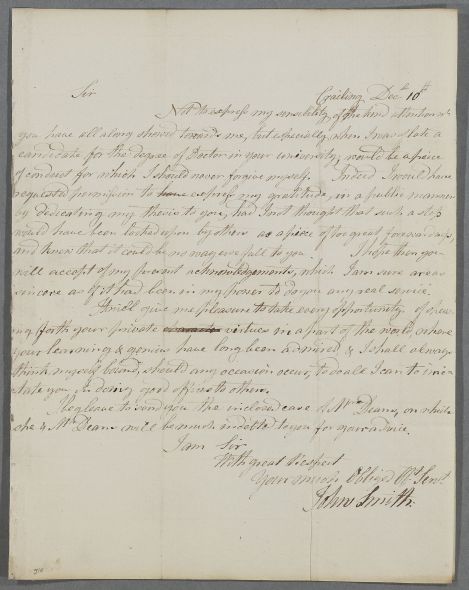 Crailing Decr 10th
Sir
Not to express my sensibility of the kind attention wh
you have all along shewed towards me, but especially when I was of late a
candidate for the degree of Doctor in your university, would be a piece
of conduct for which I should never forgive myself. Indeed I would have
requested permission to have express my gratitude, in a public manner
by dedicating my thesis to you, had I not thought that such a step
would have been looked upon by others as a piece of too great forwardness,
and knew that it could be no way grateful to you. I hope then you
will accept of my present acknowledgements, which I am sure are as
sincere as if it had been in my power to do you any real service.
It will give me pleasure to take every opportunity of
ing forth your private virtues in a part of the world, where
your learning & genius have long been admired, & I shall always
think myself bound, should any occasion occur, to do all I can to imi-
tate you, in doing good offices to others.
I beg leave to send you the inclosed case of Mrs Deans, on which
she & Mr Deans will be much indebted to you for your advice.
I am Sir
With great Respect
Your much Obliged Ob Servt
John Smith.